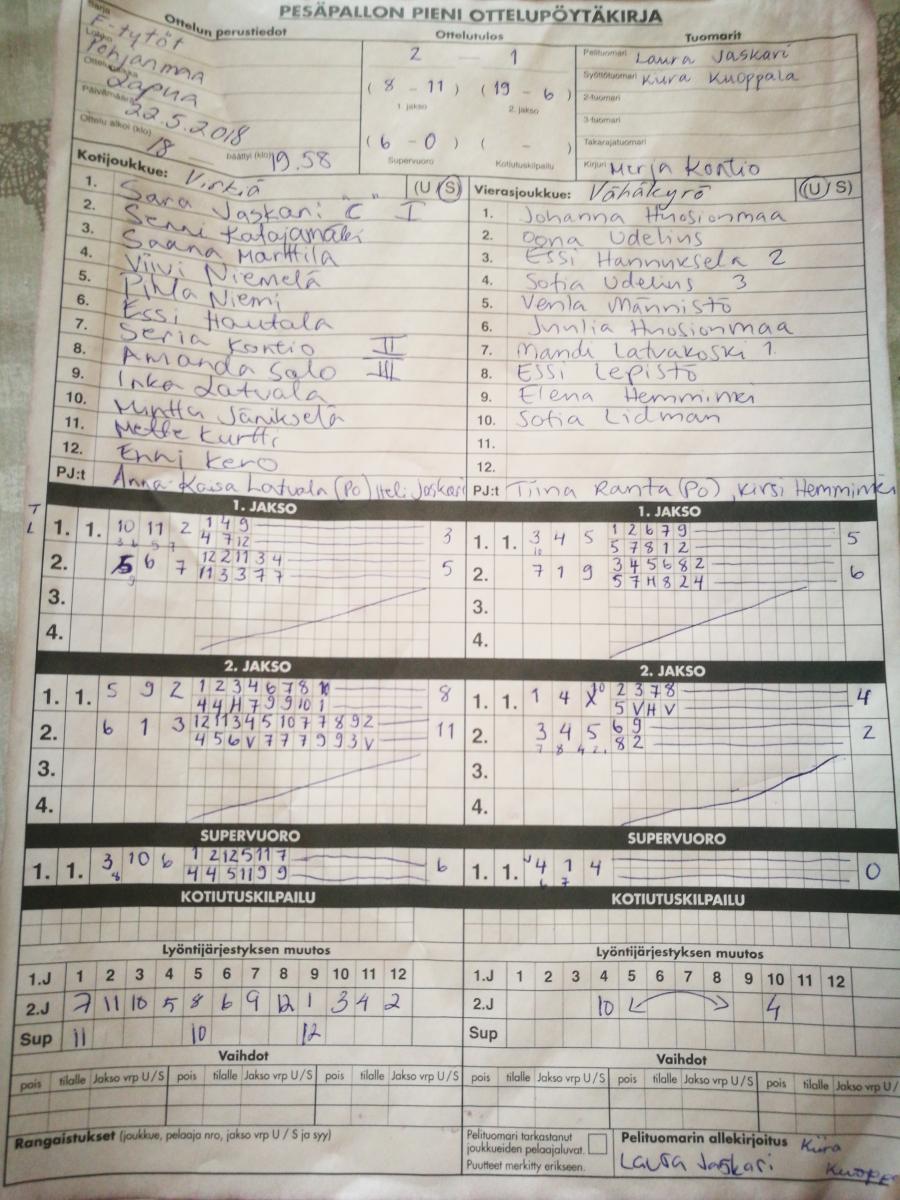 PESÄPALLON PIENI OTTELUPÖYTÄKIRJA
Sarja
Ottelun perustiedot
Ottelutulos
Tuomarit
F-tytöt
Lohko
Pohjanmaa
Lapua
Päivämäärä
22.5.2018
Ottelu alkoi (klo)
18 — päättyi (klo) 19.58
2 — 1
(8 - 11) (19 - 6)
1. jakso 2. jakso
(6 - 0) ( - )
Supervuoro Kotiutuskilpailu
Pelituomari Laura Jaskari
Syöttötuomari Kiira Kuoppala
2-tuomari
3-tuomari
Takarajatuomari
Kirjuri Merja Kontio
Kotijoukkue: Virkiä (U / S)
1. Sara Jaskari "C" I
2. Senni Katajamäki
3. Saana Marttila
4. Viivi Niemelä
5. Pihla Niemi
6. Essi Hautala
7. Seria Kontio II
8. Amanda Salo III
9. Inka Latvala
10. Minttu Jänikselä
11. Mette Kurtti
12. Enni Kero
PJ:t Anna-Kaisa Latvala (PO) Heli Jaskari
Vierasjoukkue: Vähäkyrö (U / S)
1. Johanna Huosionmaa
2. Oona Udelius
3. Essi Hannuksela 2
4. Sofia Udelius 3
5. Venla Männistö
6. Juulia Huosionmaa
7. Mandi Latvakoski 1.
8. Essi Lepistö
9. Elena Hemminki
10. Sofia Lidman
11.
12.
PJ:t Tiina Ranta (PO), Kirsi Hemminki
1. JAKSO
T
L
1. 1. 10 11 2 1 4 9 3
4 7 12
2. 6 7 12 2 11 3 4 5
11 3 3 7 7
3.
4.
1. JAKSO
1. 1. 3 4 5 1 2 6 7 9 5
10 5 7 8 1 2
2. 7 1 9 3 4 5 6 8 2 6
5 7 H 8 2 4
3.
4.
2. JAKSO
1. 1. 5 9 2 1 2 3 4 6 7 8 8
4 4 H 7 9 9 10 1
2. 6 1 3 12 11 3 4 5 10 7 7 8 9 2 11
4 5 6 V 7 7 7 9 9 3 V
3.
4.
2. JAKSO
1. 1. 1 4 10 2 3 7 8 4
5 V H V
2. 3 4 5 6 9 2
7 8 4 2. 8 2
3.
4.
SUPERVUORO
1. 1. 3 10 6 1 2 12 5 11 7 6
8 4 4 5 11 9 9
SUPERVUORO
1. 1. 4 1 4 0
6 7
KOTIUTUSKILPAILU
KOTIUTUSKILPAILU
Lyöntijärjestyksen muutos
1.J 1 2 3 4 5 6 7 8 9 10 11 12
2.J 7 11 10 5 8 6 9 12 1 3 4 2
Sup 11 10 12
Lyöntijärjestyksen muutos
1.J 1 2 3 4 5 6 7 8 9 10 11 12
2.J 10 4
Sup
Vaihdot
pois tilalle Jakso vrp U / S pois tilalle Jakso vrp U / S pois tilalle Jakso vrp U / S
Vaihdot
pois tilalle Jakso vrp U / S pois tilalle Jakso vrp U / S pois tilalle Jakso vrp U /
Rangaistukset (joukkue, pelaaja nro, jakso vrp U / S ja syy)
Pelituomari tarkastanut
joukkueiden pelaajaluvat.
Puutteet merkitty erikseen.
Pelituomarin allekirjoitus Kiira
Laura Jaskari